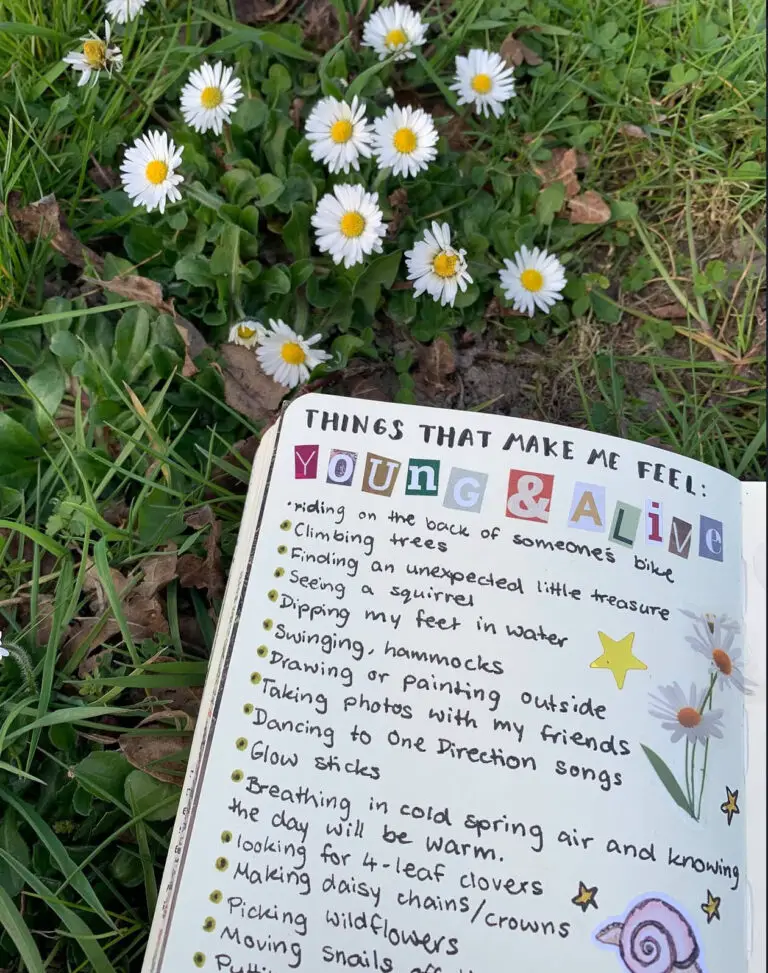 THINGS THAT MAKE ME FEEL:
YOUNG & ALiVe
•riding on the back of someone's bike
•Climbing trees
•Finding an unexpected little treasure
•Seeing a squirrel
•Dipping my feet in water
•Swinging, hammocks
•Drawing or painting outside
•Taking photos with my friends
•Dancing to One Direction songs
•Glow sticks
•Breathing in cold spring air and knowing
the day will be warm.
•looking for 4-leaf clovers
•Making daisy chains/crowns
•Picking wildflowers
•Moving snails off